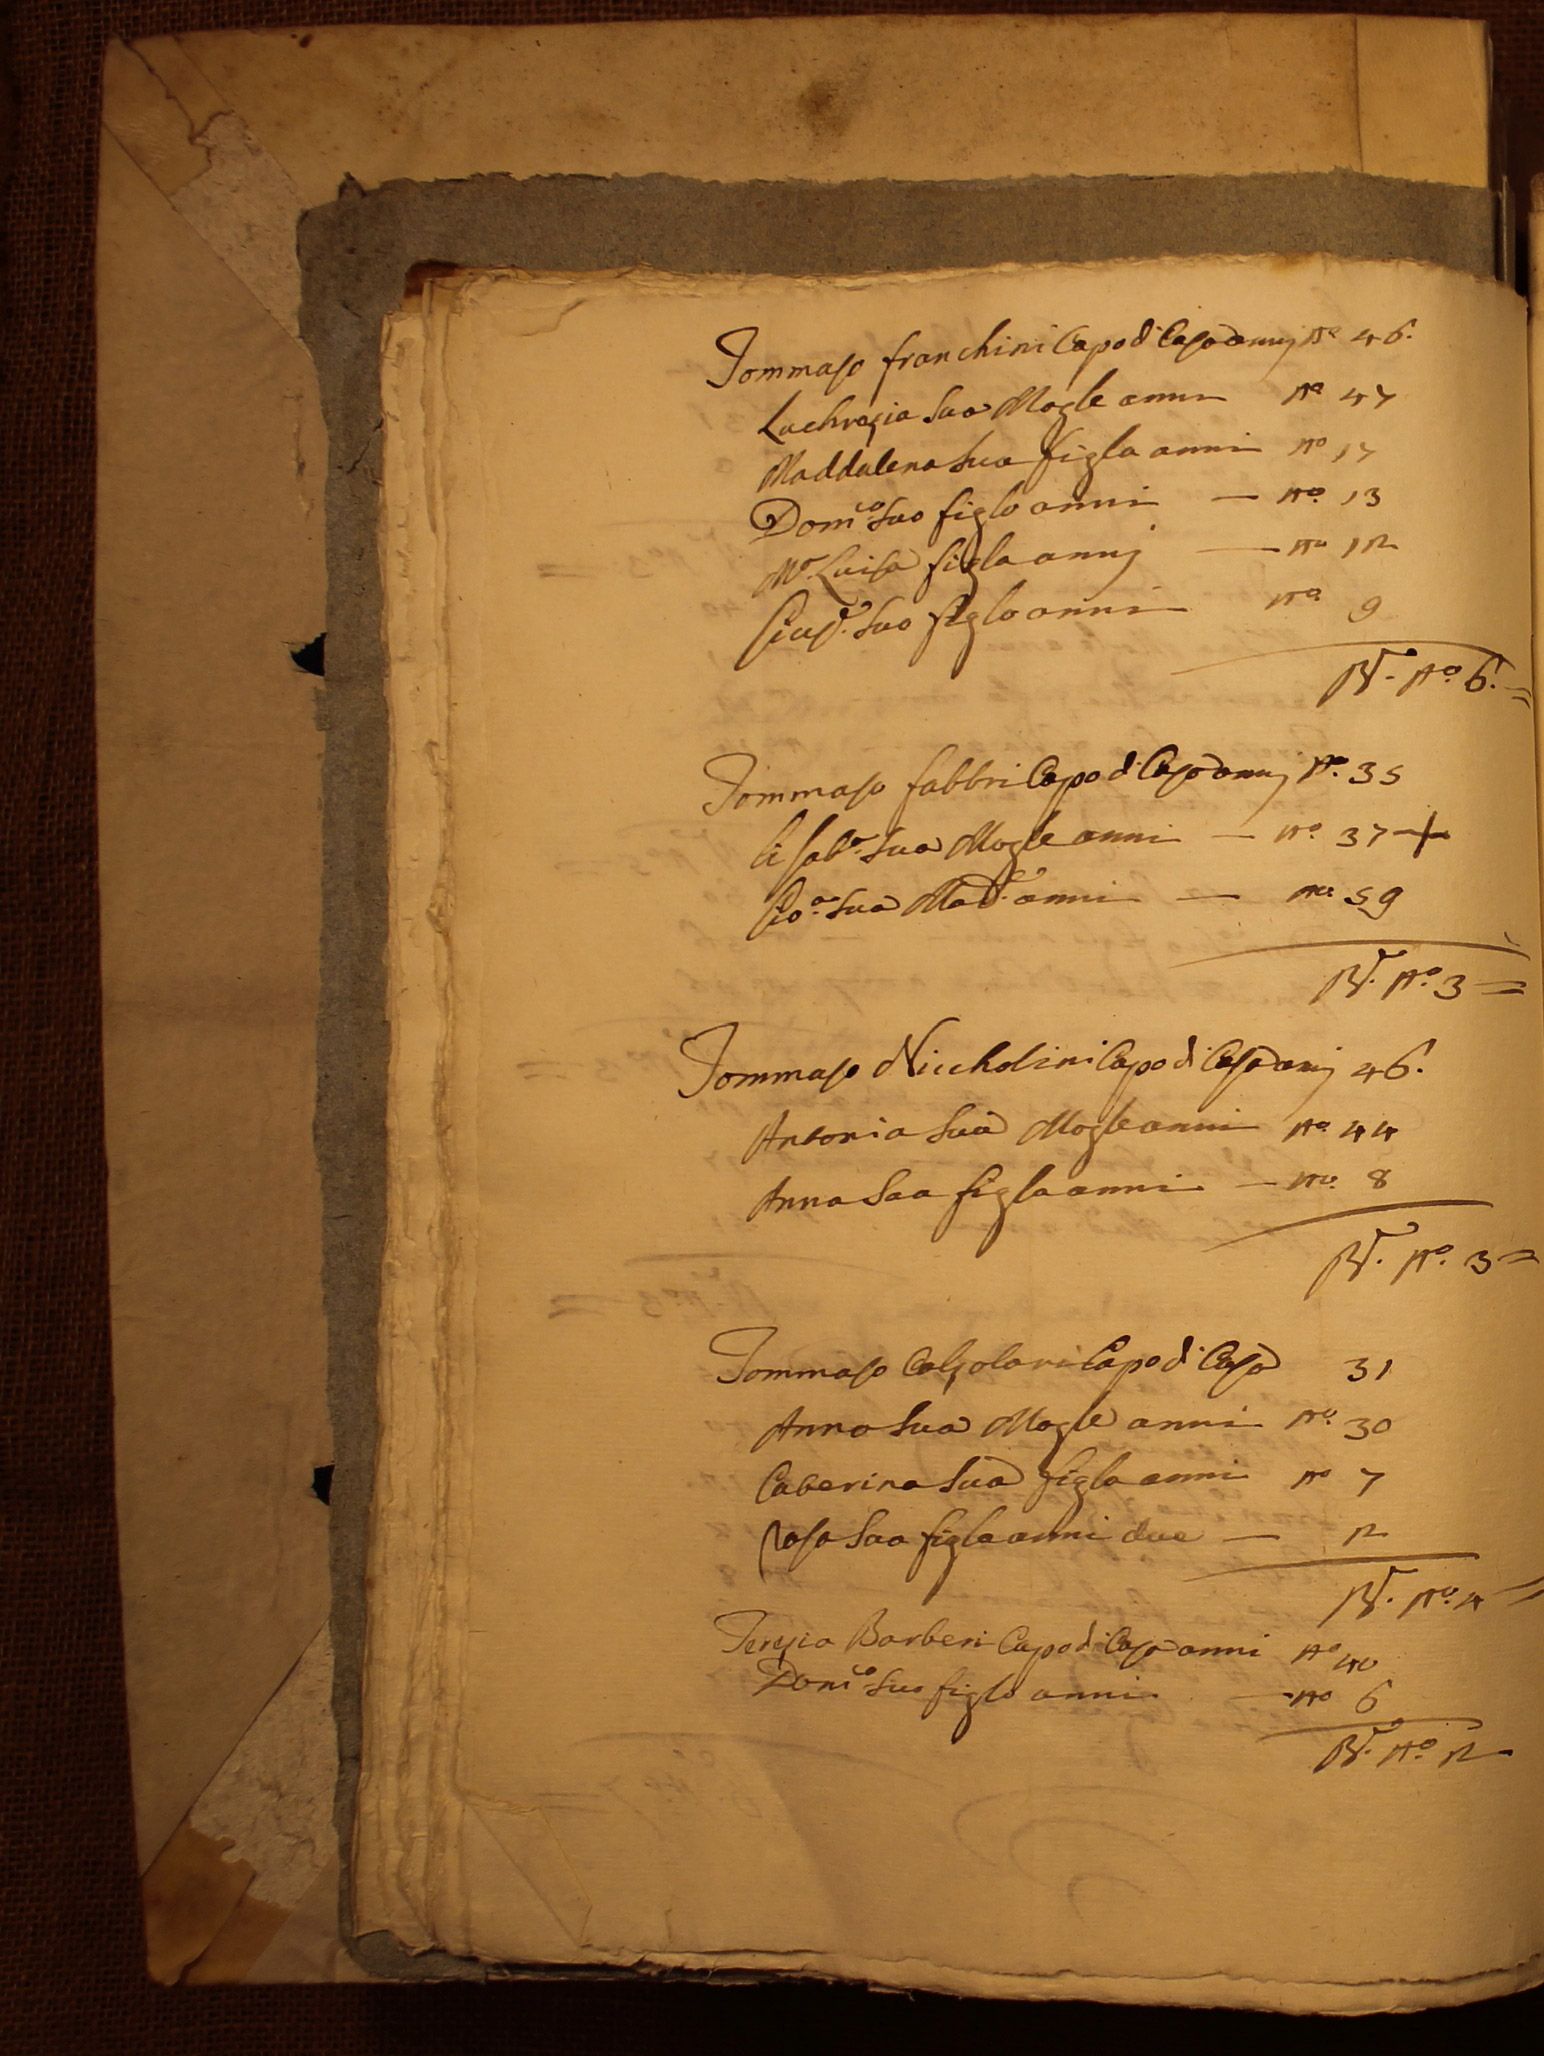 Tommaso franchini Capo di Casa annj no 46.
Luchrezia Sua Mogle anni no 47
Maddalena Sua figla anni no 17
Dom.co Suo figlo anni — no. 13
Ma. Luisa figla annj — no 12
Giuse. Suo figlo anni no. 9
no. 6. =
Tommaso fabbri Capo di Casa annj no. 35
Lisab.a Sua Mogle anni — no. 37 +
Gio.a Sua Mad.e anni — no. 59
no. 3 =
Tommaso Niccholini Capo di Casa anj 46.
Antonia Sua Mogle anni no. 44
Anna Sua figla anni — no. 8
no. 3 =
Tommaso Calzolari Capo di Casa 31
Anna Sua Mogle anni no. 30
Caterina Sua figla anni no 7
Rosa Sua figla anni due — 2
no. 4 =
Teresia Barberi Capo di Casa anni no 40
Dom.co Suo figlo anni — no 6
no. 2